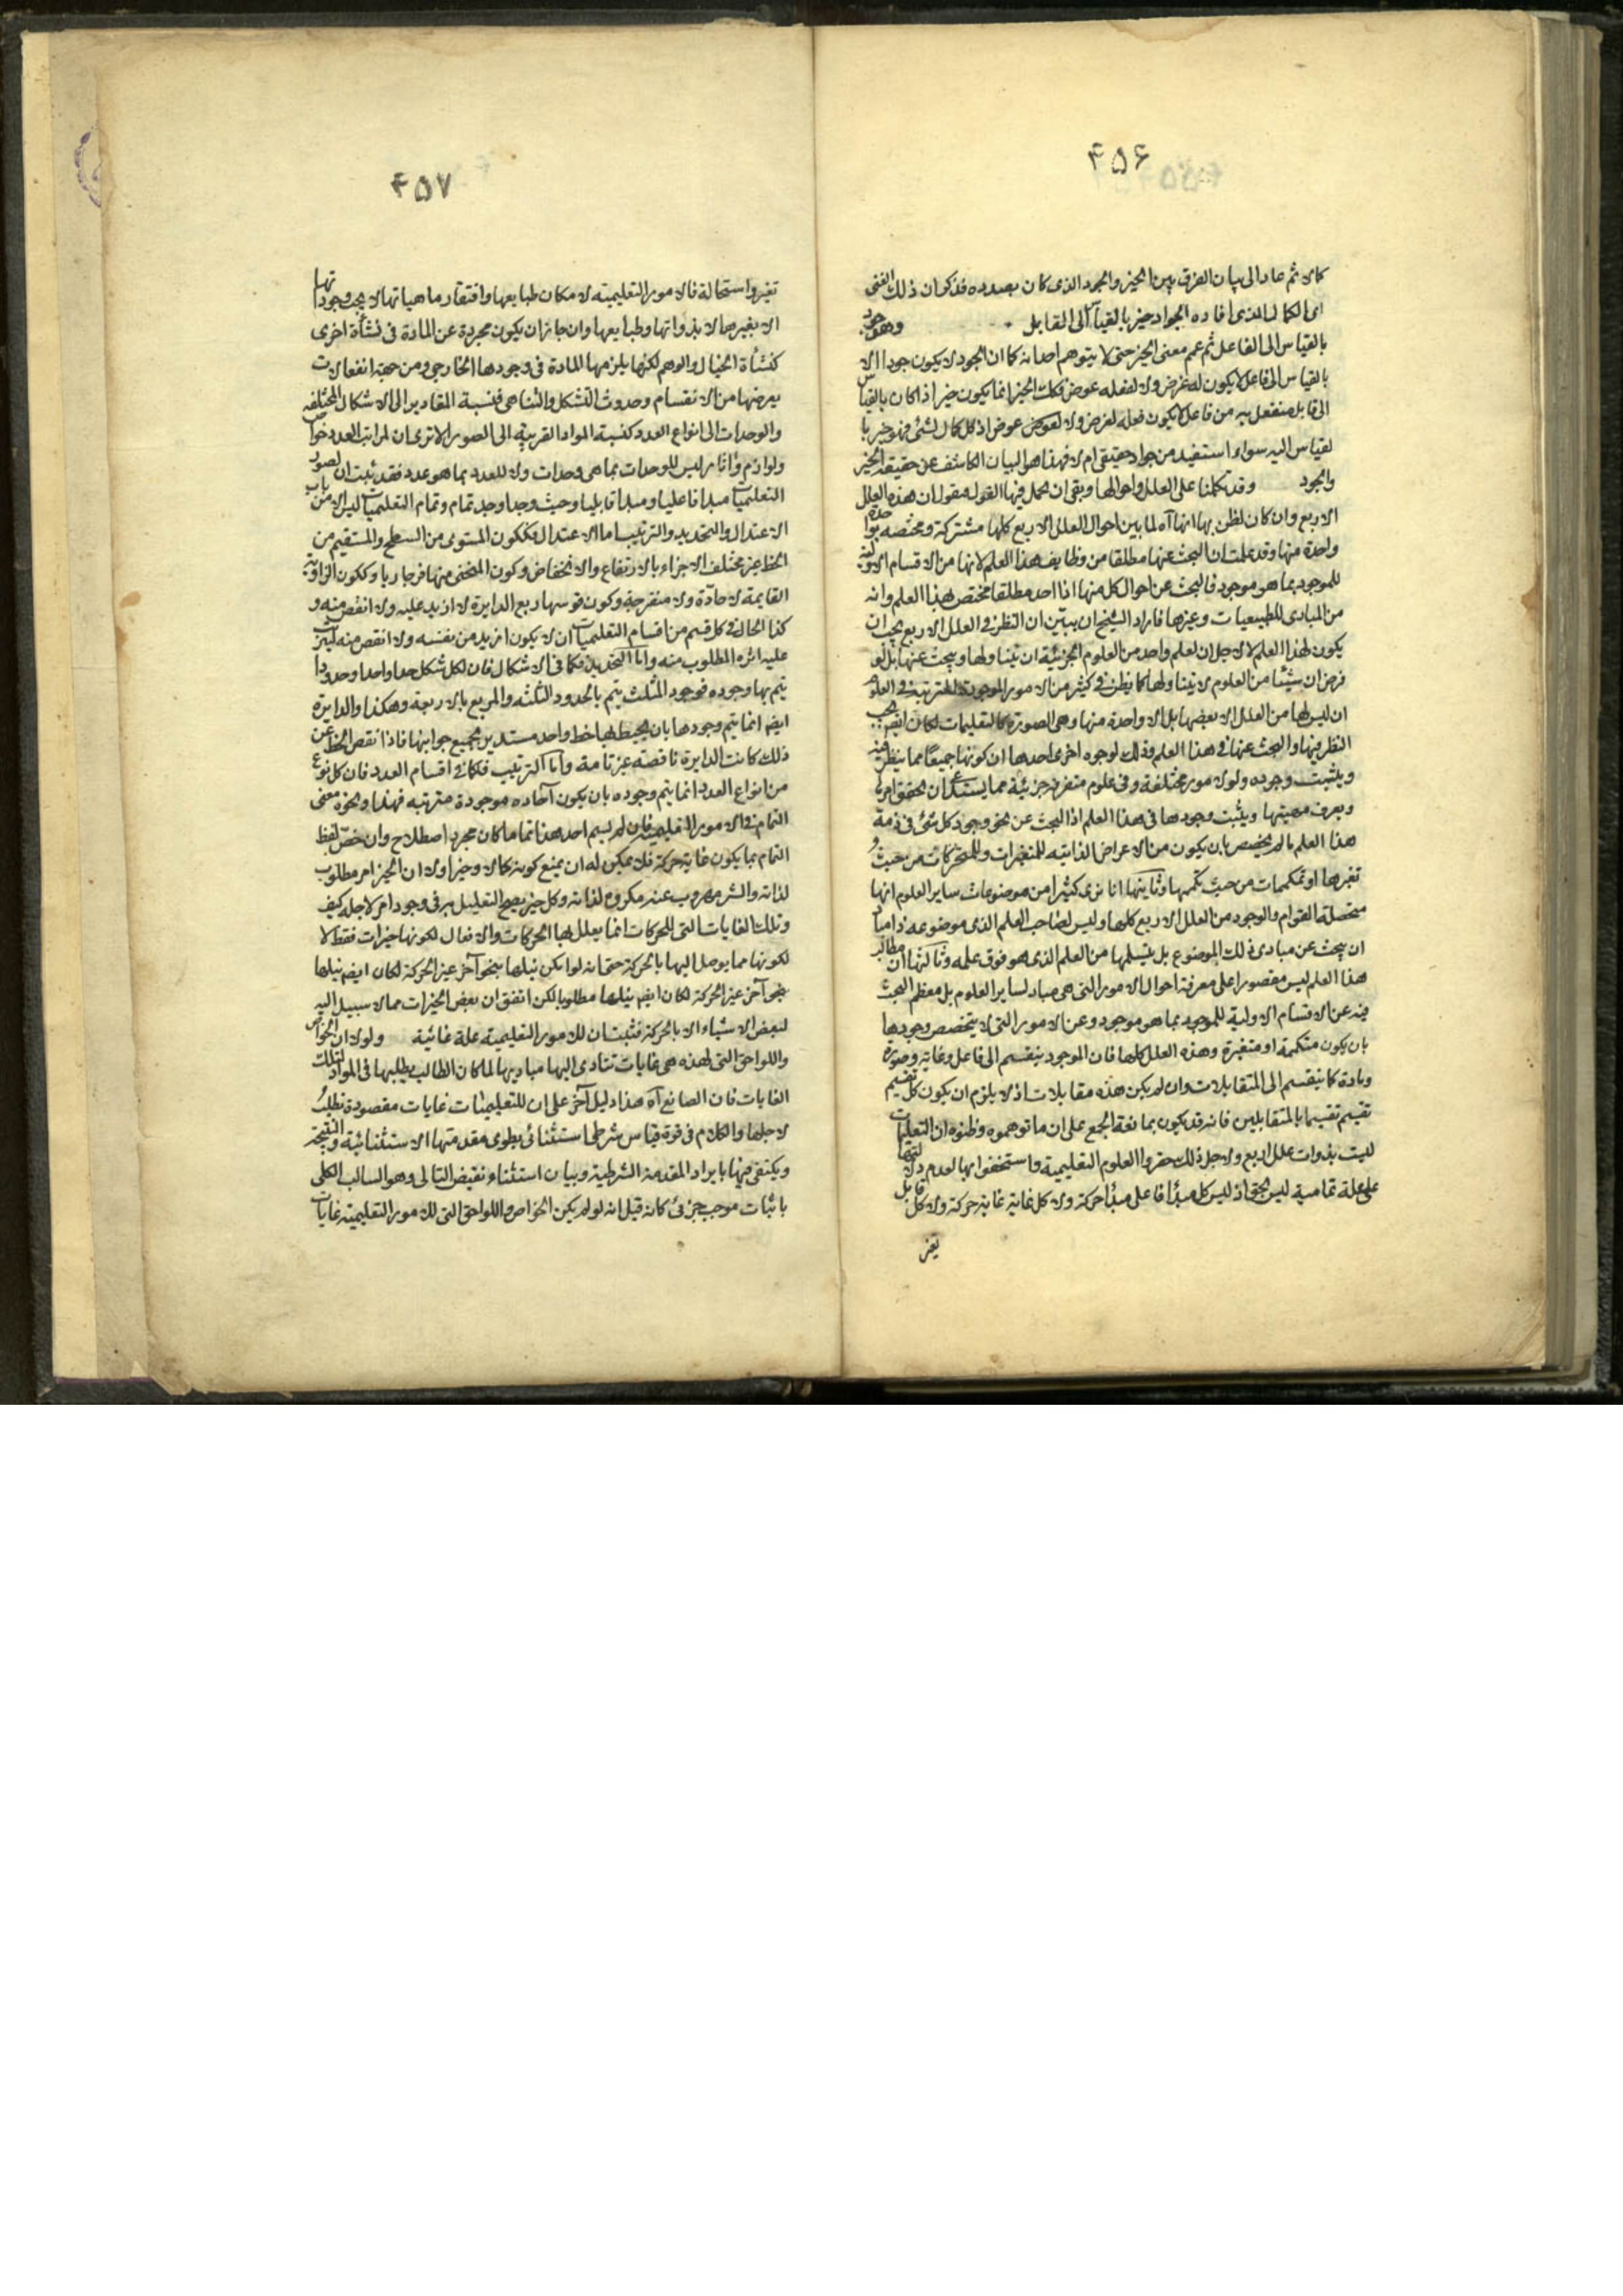 ۴۵۶
كمالا ثم عاد الى بيان الفرق بين الخير والجود الذى كان بصدده فذكر ان ذلك المعنى
اى الكمال الذى افاده الجواد خير بالقياس الى القابل وجود وهو
بالقياس الى الفاعل ثم عمم معنى الخير حتى لا يتوهم احد انه كما ان الجود لا يكون جودا الا
بالقياس الى فاعل لا يكون له غرض ولا لفعله عوض فكذلك الخير انما يكون خيرا اذا كان بالقياس
الى قابل منفعل به من فاعل لا يكون فعله لغرض ولا لعوض عوض اذ كل كمال لشئ فهو خير با
لقياس اليه سواء استفيد من جواد حقيقى ام لا فهذا هو البيان الكاشف عن حقيقة الخير
والجود وقد تكلمنا على العلل واحوالها وبقى ان نكمل فيها القول فنقول ان هذه العلل
الاربع وان كان لظن بها انها آه لما بين احوال العلل الاربع كلها مشتركة ومختصه بواحدة
واحدة منها وقد علمت ان البحث عنها مطلقا من وظايف هذا العلم لانها من الاقسام الاولية
للموجود بما هو موجود فالبحث عن احوال كل منها اذا احد مطلقا مختص بهذا العلم وانه
من المبادى للطبيعيات وغيرها فاراد الشيخ ان يبين ان النظر فى العلل الاربع يجب ان
يكون لهذا العلم لا لاجل ان لعلم واحد من العلوم الجزئية ان يتناولها ويبحث عنها بل لو
فرض ان شيئا من العلوم لا يتناولها كما يظن فى كثير من الامور الموجودة المترتبة فى العلوم
ان ليس لها من العلل الا بعضها بل الا واحدة منها وهى الصورة كالتعليمات لكان ايضا يجب
النظر فيها والبحث عنها فى هذا العلم وذلك لوجوه اخرى احدها ان كونها جميعا مما ينظر فيه
ويثبت وجوده ولو لامور مختلفة وفى علوم متفرقة جزئية مما يستدعى ان يحقق امرها
ويعرف مهيتها ويثبت وجودها فى هذا العلم اذ البحث عن نحو وجود كل شئ فى ذمة
هذا العلم ما لم يخصص بان يكون من الاعراض الذاتيه للمتغيرات وللمتحركات من حيث
تغيرها او تكممات من حيث تكممها وثانيتها انا نرى كثيرا من موضوعات ساير العلوم انها
متحصلة القوام والوجود من العلل الاربع كلها وليس لصاحب العلم الذى موضوعه ذا مبادى
ان يبحث عن مبادى ذلك الموضوع بل يتسلمها من العلم الذى هو فوق علمه وثالثها ان مطالب
هذا العلم ليس مقصورا على معرفة احوال الامور التى هى مباد لساير العلوم بل معظم البحث
فيه عن الاقسام الاولية للموجود بما هو موجود وعن الامور التى لا يتخصص وجودها
بان يكون متكممة او متغيرة وهذه العلل كلها فان الموجود ينقسم الى فاعل وغاية وصورة
ومادة كما ينقسم الى المتقابلات وان لم يكن هذه مقابلات اذ لا يلزم ان يكون كل تقسيم
تقسيم تقسيما بالمتقابلين فانه قد يكون بما نعة الجمع على ان ما توهموه وظنوه ان التعليمات
ليست بذوات علل اربع ولاجل ذلك حقروا العلوم التعليمية واستخفوا بها لعدم دلالتها
على علة تمامية ليس بحق اذ ليس كل مبدأ فاعلى مبدأ حركة ولا كل غاية غاية حركة ولا كل قابل
تغير
۴۵۷
تغير واستحالة فالامور التعليمية لامكان طبايعها وافتقار ماهياتها لا يجب وجوداتها
الا بغيرها لا بذواتها وطبايعها وان جاز ان يكون مجردة عن المادة فى نشأة اخرى
كنشأة الخيال والوهم لكنها يلزمها المادة فى وجودها الخارجى ومن جهة انفعالات
يعرضها من الانقسام وحدوث التشكل والتناهى فنسبة المقادير الى الاشكال المختلفة
والوحدات الى انواع العدد كنسبة المواد القريبة الى الصور الا ترى ان لمراتب العدد خواص
ولوازم وآثار ليس للوحدات بما هى وحدات ولا للعدد بما هو عدد فقد ثبت ان لصور
التعليميات مبدا فاعليا ومبدا قابليا وحيث وجدا وجد تمام وتمام التعليميات ليس الا من باب
الاعتدال والتحديد والترتيب اما الاعتدال فككون المستوى من السطح والمستقيم من
الخط غير مختلف الاجزاء بالارتفاع والانخفاض وكون المنحنى منها فرجاريا وككون الزاوية
القايمة لا حادة ولا منفرجة وكون قوسها ربع الدايرة لا ازيد عليه ولا انقص منه و
كذا الحال فى كل قسم من اقسام التعليميات ان لا يكون ازيد من نفسه ولا انقص منه ليترتب
عليه اثره المطلوب منه واما التحديد فكما فى الاشكال فان لكل شكل حدا واحدا وحدودا
يتم بها وجوده فوجود المثلث يتم بالحدود الثلثه والمربع بالاربعة وهكذا والدايرة
ايضا انما يتم وجودها بان يحيط بها خط واحد مستدير بجميع جوانبها فاذا نقص الخط عن
ذلك كانت الدايرة ناقصة غير تامة واما الترتيب فكما فى اقسام العدد فان كل نوع
من انواع العدد انما يتم وجوده بان يكون آحاده موجودة مترتبه فهذا ونحوه معنى
التمام فى الامور التعليمية فان لم يسم احد هذا تماما كان مجرد اصطلاح وان خص لفظ
التمام بما يكون غاية حركة فلا يمكن له ان يمنع كونه كمالا وخيرا ولا ان الخير امر مطلوب
لذاته والشر مهروب عنه مكروه لذاته وكل خير يصح التعليل به فى وجود امر لاجله كيف
وتلك الغايات التى للحركات انما يعلل بها الحركات والافعال لكونها خيرات فقط لا
لكونها مما يوصل اليها بالحركة حتى انه لو امكن نيلها بنحو آخر غير الحركة لكان ايضا نيلها
بنحو آخر غير الحركة لكان ايضا نيلها مطلوبا لكن اتفق ان بعض الخيرات مما لا سبيل اليه
لبعض الاشياء الا بالحركة فثبت ان للامور التعليمية علة غائية ولولا ان الخواص
واللواحق التى لهذه هى غايات تتادى اليها مباديها لما كان الطالب يطلبها فى المواد لتلك
الغايات فان الصانع آه هذا دليل آخر على ان للتعليميات غايات مقصودة تطلب
لاجلها والكلام فى قوة قياس شرطى استثنائى يطوى مقدمتها الاستثنائية والنتيجة
ويكتفى فيها بايراد المقدمة الشرطية وبيان استثناء نقيض التالى وهو السالب الكلى
باثبات موجب جزئى كانه قيل انه لو لم يكن الخواص واللواحق التى للامور التعليمية غايات